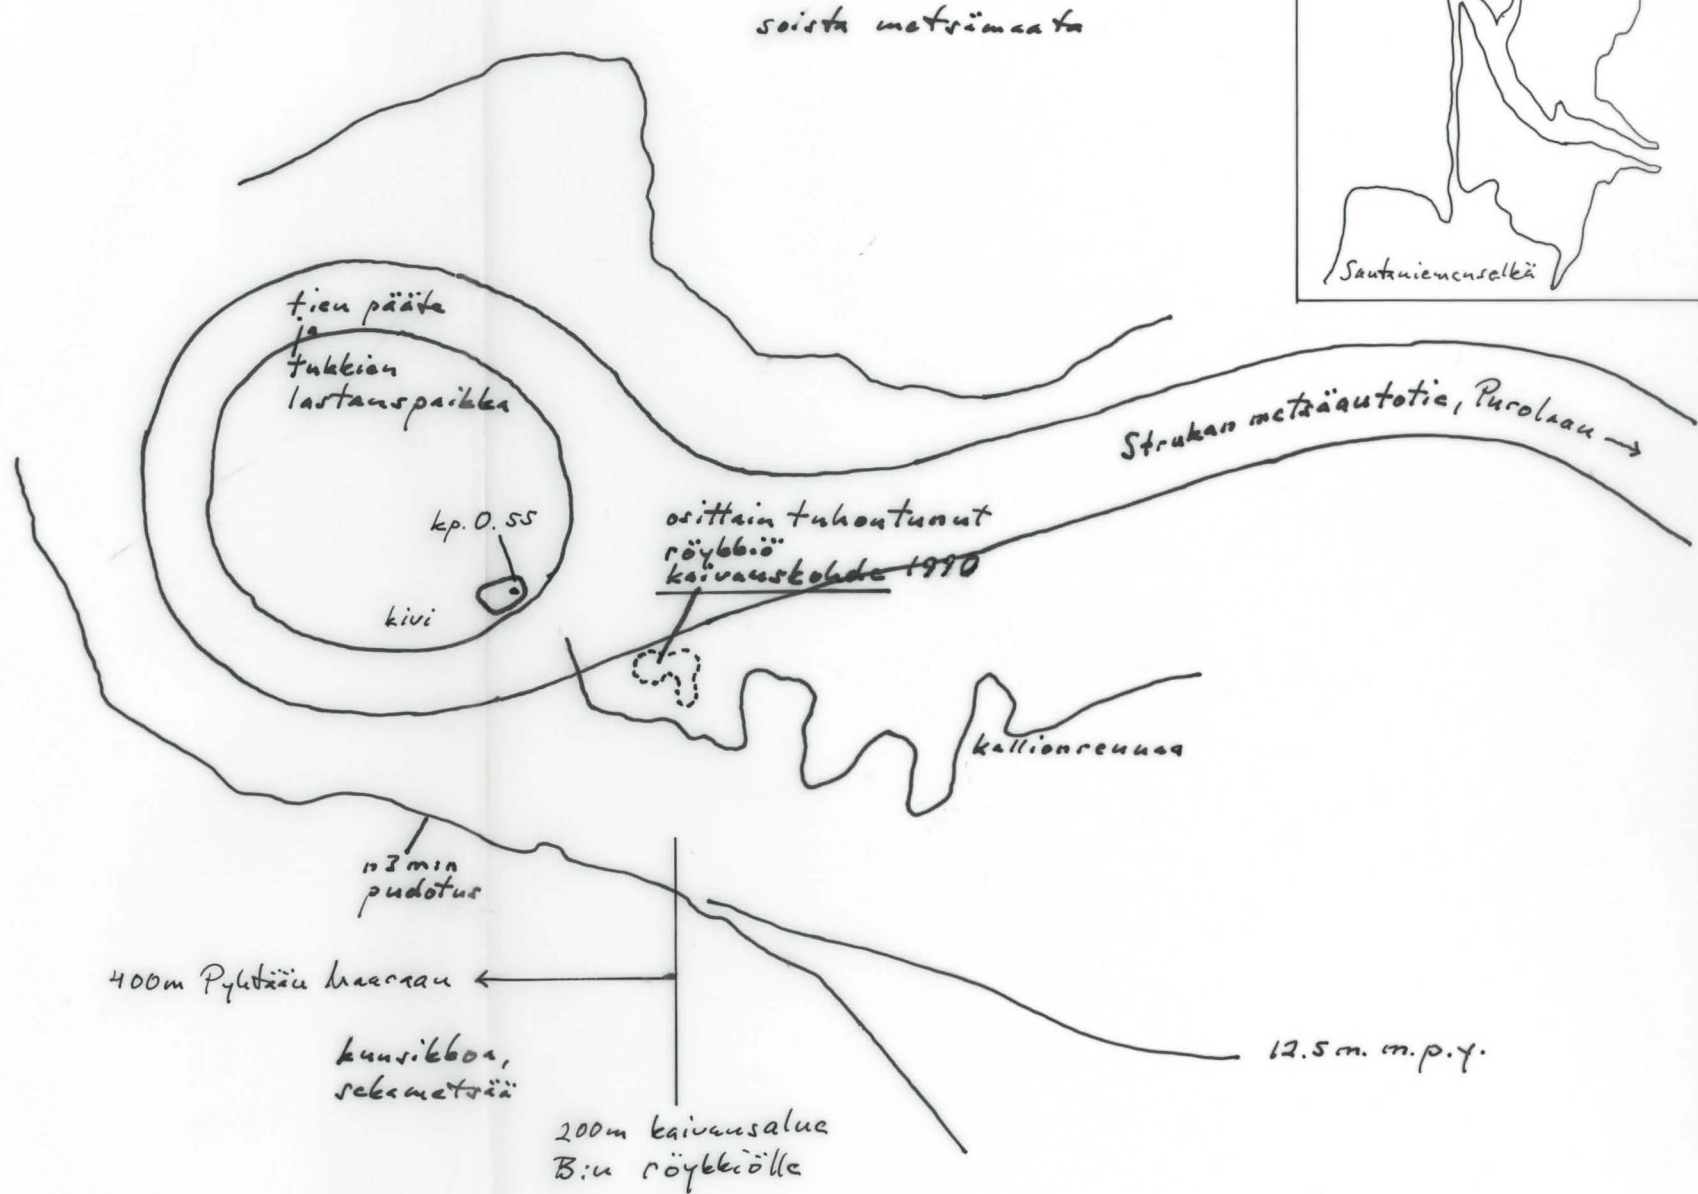 soista metsämaata
Santaniemenselkä
tien pääte
ja
tukkien
lastauspaikka
Strukan metsäautotie, Purolaan →
kp. 0.55
kivi
osittain tuhoutunut
röykkiö
kaivauskohde 1990
kallionreunaa
n 3 m:n
pudotus
400m Pyhtään haaraan ←
kuusikkoa,
sekametsää
12.5 m. m.p.y.
200m kaivausalue
B:n röykkiölle